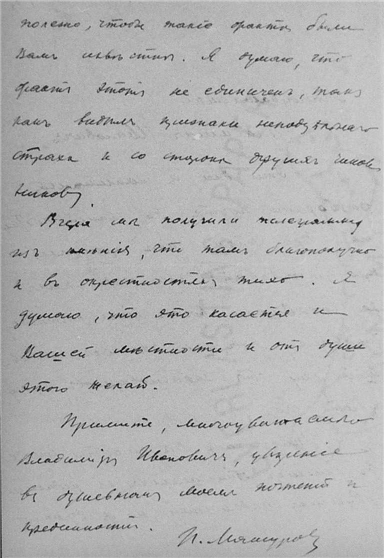 полезно, чтобы такіе факты были
Вамъ извѣстны. Я думаю, что
фактъ этотъ не единиченъ, такъ
какъ видѣлъ признаки неподдѣльнаго
страха и со стороны другихъ чинов
никовъ.
Вчера мы получили телеграмму
изъ имѣнія, что тамъ благополучно
и въ окрестностяхъ тихо. Я
думаю, что это касается и
Вашей мѣстности и отъ души
этого желаю.
Примите, многоуважаемый
Владиміръ Ивановичъ, увѣреніе
въ душевномъ моемъ почтеніи и
преданности.
П.